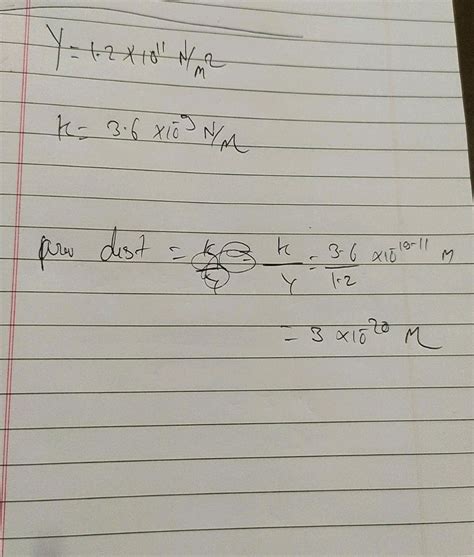 Y = 1.2 × 10¹¹ N/M²
K = 3.6 × 10⁻⁹ N/M
dist = K/Y = 3.6/1.2 × 10⁻¹⁹⁻¹¹ M
= 3 × 10⁻²⁰ M